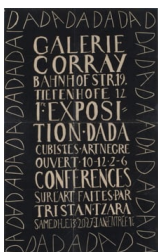 DADADADADADADA
GALERIE
CORRAY
BAHNHOFSTR.19.
TIEFENHOFE 12
1e EXPOSI-
TION·DADA
CUBISTES·ART NEGRE
OUVERT·10-12·2-6
CONFERENCES
SUR L'ART FAITES PAR
TRISTAN·TZARA